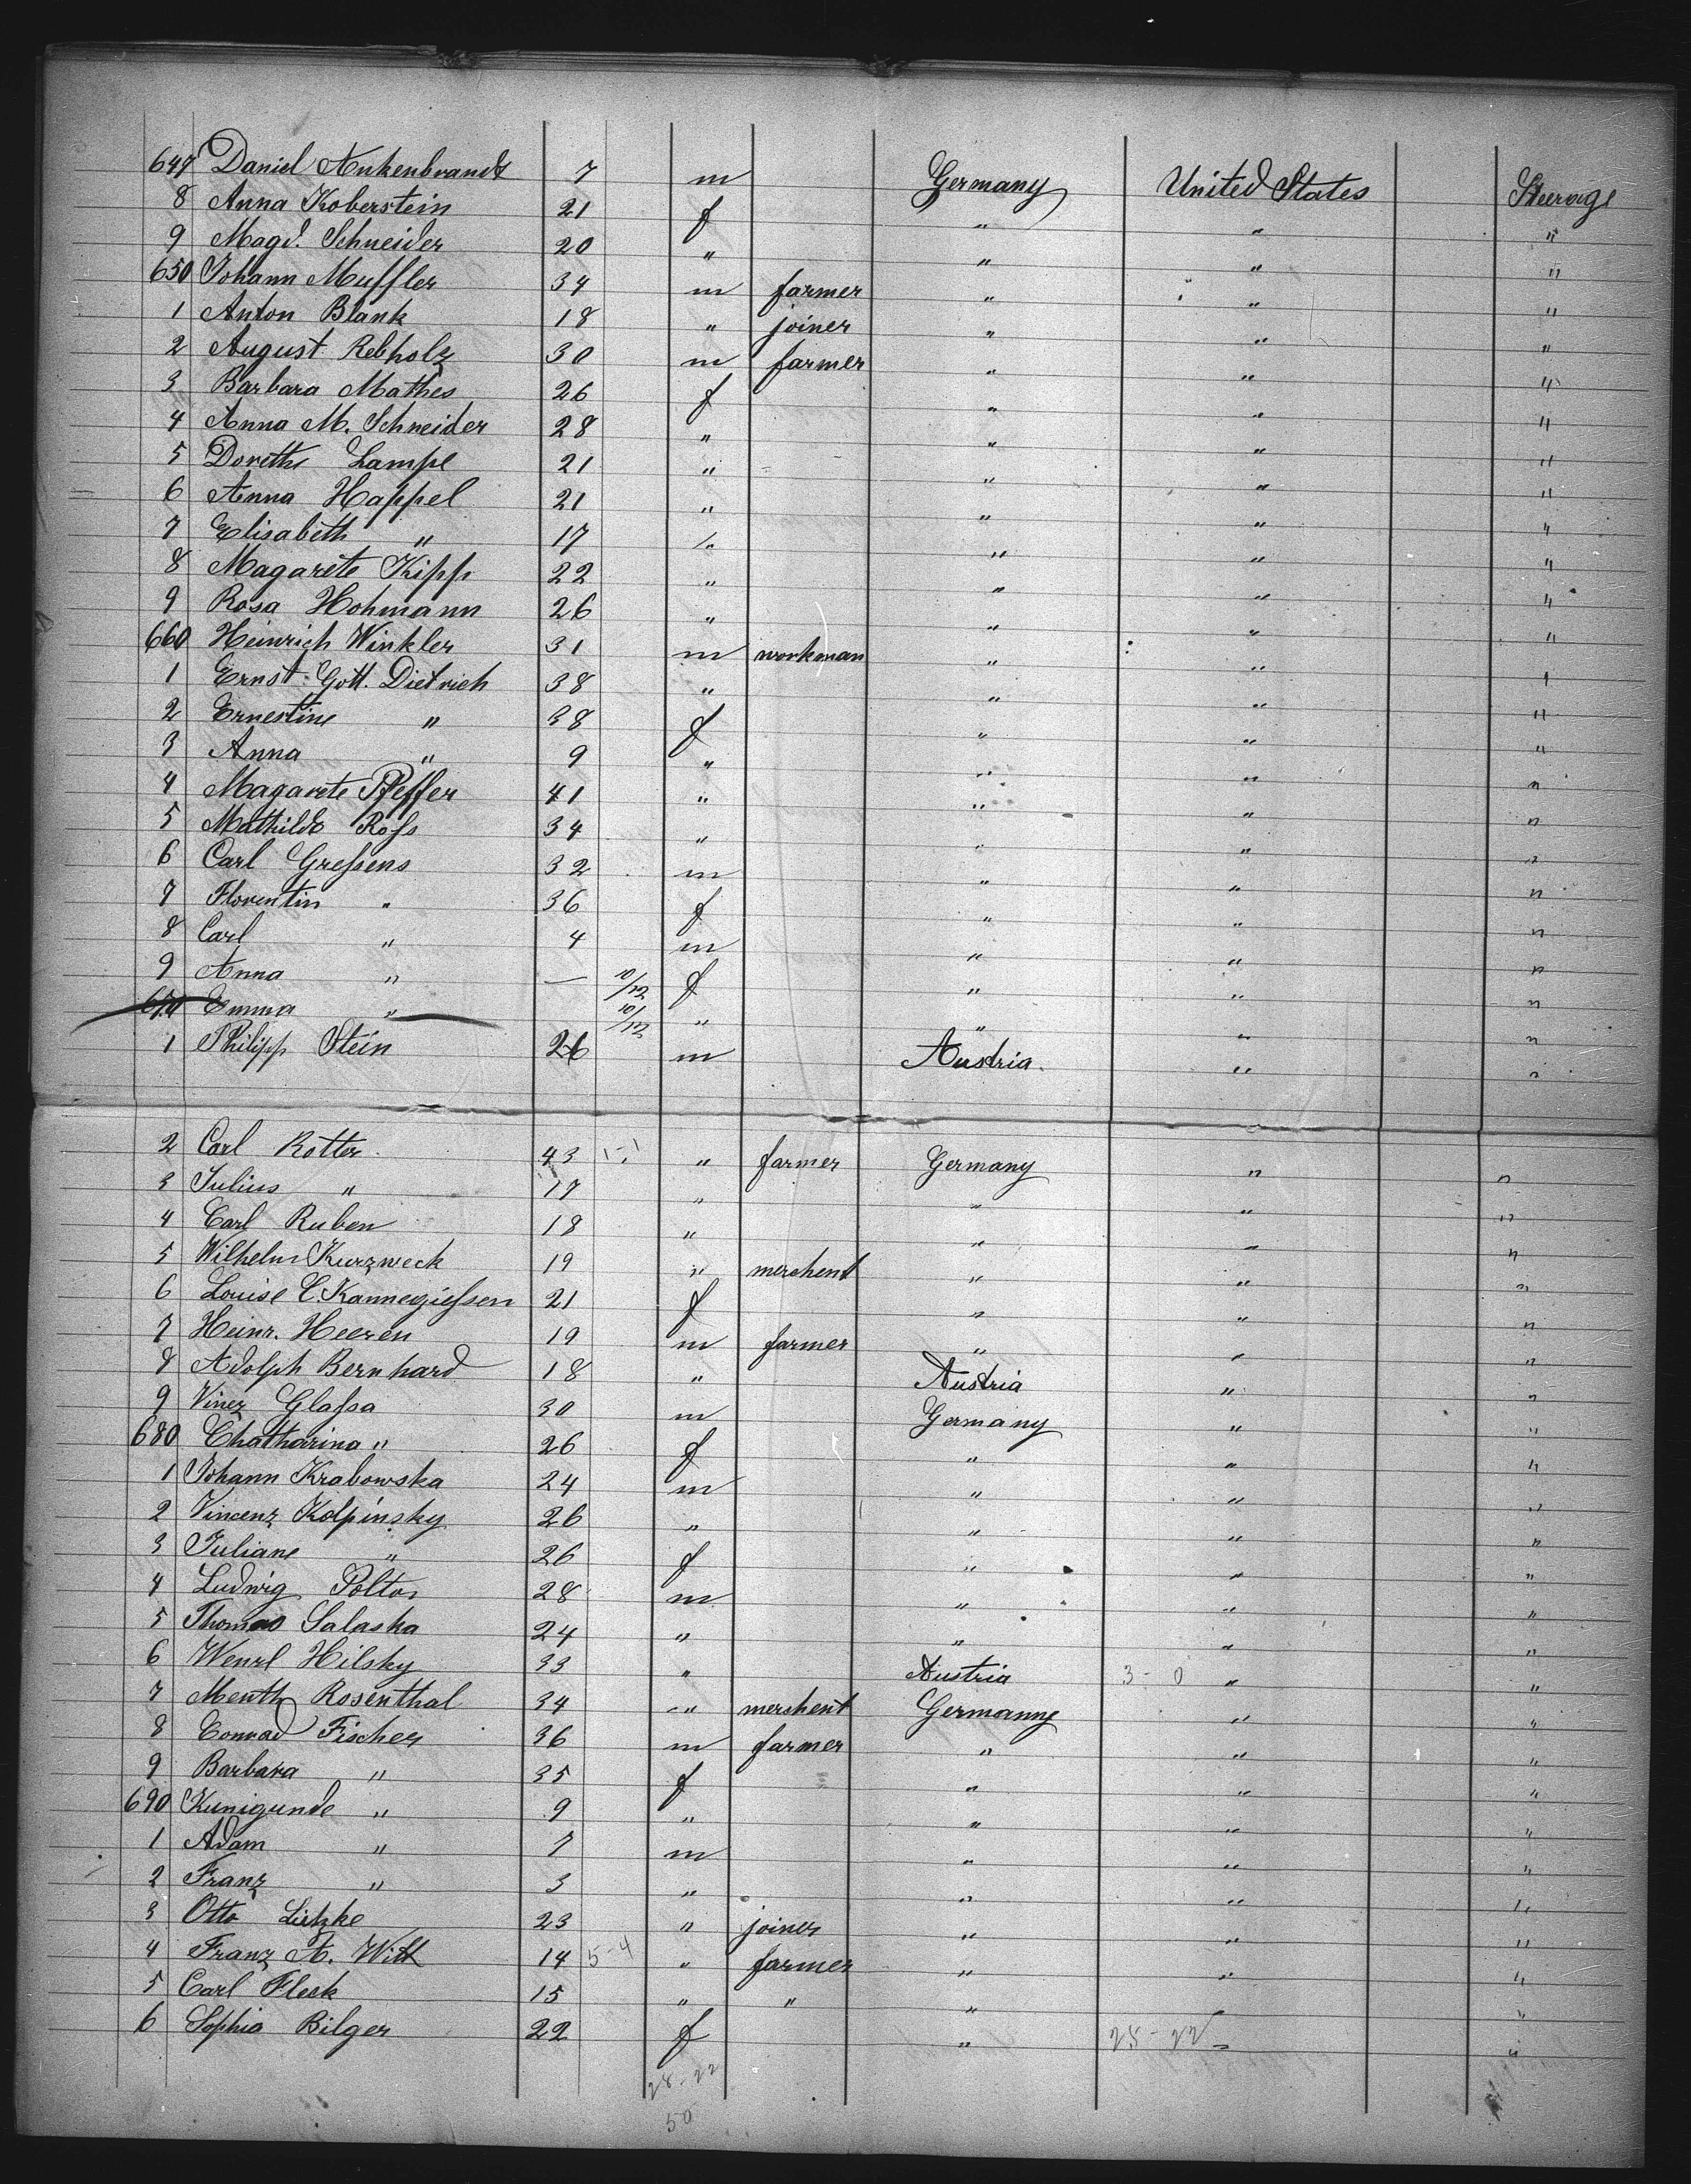 647 Daniel Ankenbrandt 7 m Germany United States Steerage
8 Anna Koberstein 21 f " " "
9 Magd. Schneider 20 " " " "
650 Johann Muffler 34 m farmer " " "
1 Anton Blank 18 " joiner " " "
2 August Rebholz 30 m farmer " " "
3 Barbara Mathes 26 f " " "
4 Anna M. Schneider 28 " " " "
5 Doreth Lampe 21 " " " "
6 Anna Happel 21 " " " "
7 Elisabeth " 17 " " " "
8 Magarete Kipp 22 " " " "
9 Rosa Hohmann 26 " " " "
660 Heinrich Winkler 31 m workman " " "
1 Ernst Gott. Dietrich 38 " " " "
2 Ernestine " 38 f " " "
3 Anna " 9 " " " "
4 Magarete Pfeffer 41 " " " "
5 Mathilde Roſs 34 " " " "
6 Carl Greſsens 32 m " " "
7 Florentin " 36 f " " "
8 Carl " 4 m " " "
9 Anna " — 10/12 f " " "
670 Emma " 10/12 " " " "
1 Philipp Stein 26 m Austria " "
2 Carl Rotter 43 " farmer Germany " "
3 Julius " 17 " " " "
4 Carl Ruben 18 " " " "
5 Wilhelm Kurzweck 19 " merchent " " "
6 Louise C. Kannegieſsen 21 f " " "
7 Heinr. Heeren 19 m farmer " " "
8 Adolph Bernhard 18 " Austria " "
9 Vinez Glaſsa 30 m Germany " "
680 Chatharina " 26 f " " "
1 Johann Krabowska 24 m " " "
2 Vincenz Kolpinsky 26 " " " "
3 Juliane " 26 f " " "
4 Ludwig Polton 28 m " " "
5 Thomas Salaska 24 " " " "
6 Wenzl Hilsky 33 " Austria 3-0 " "
7 Menth Rosenthal 34 " merchent Germany " "
8 Conrad Fischer 36 m farmer " " "
9 Barbara " 35 f " " "
690 Kunigunde " 9 " " " "
1 Adam " 7 m " " "
2 Franz " 3 " " " "
3 Otto Lietzke 23 " joiner " " "
4 Franz A. Witt 14 5-4 " farmer " " "
5 Carl Fleck 15 " " " " "
6 Sophia Bilger 22 f " 28-22 " "
28-22
50